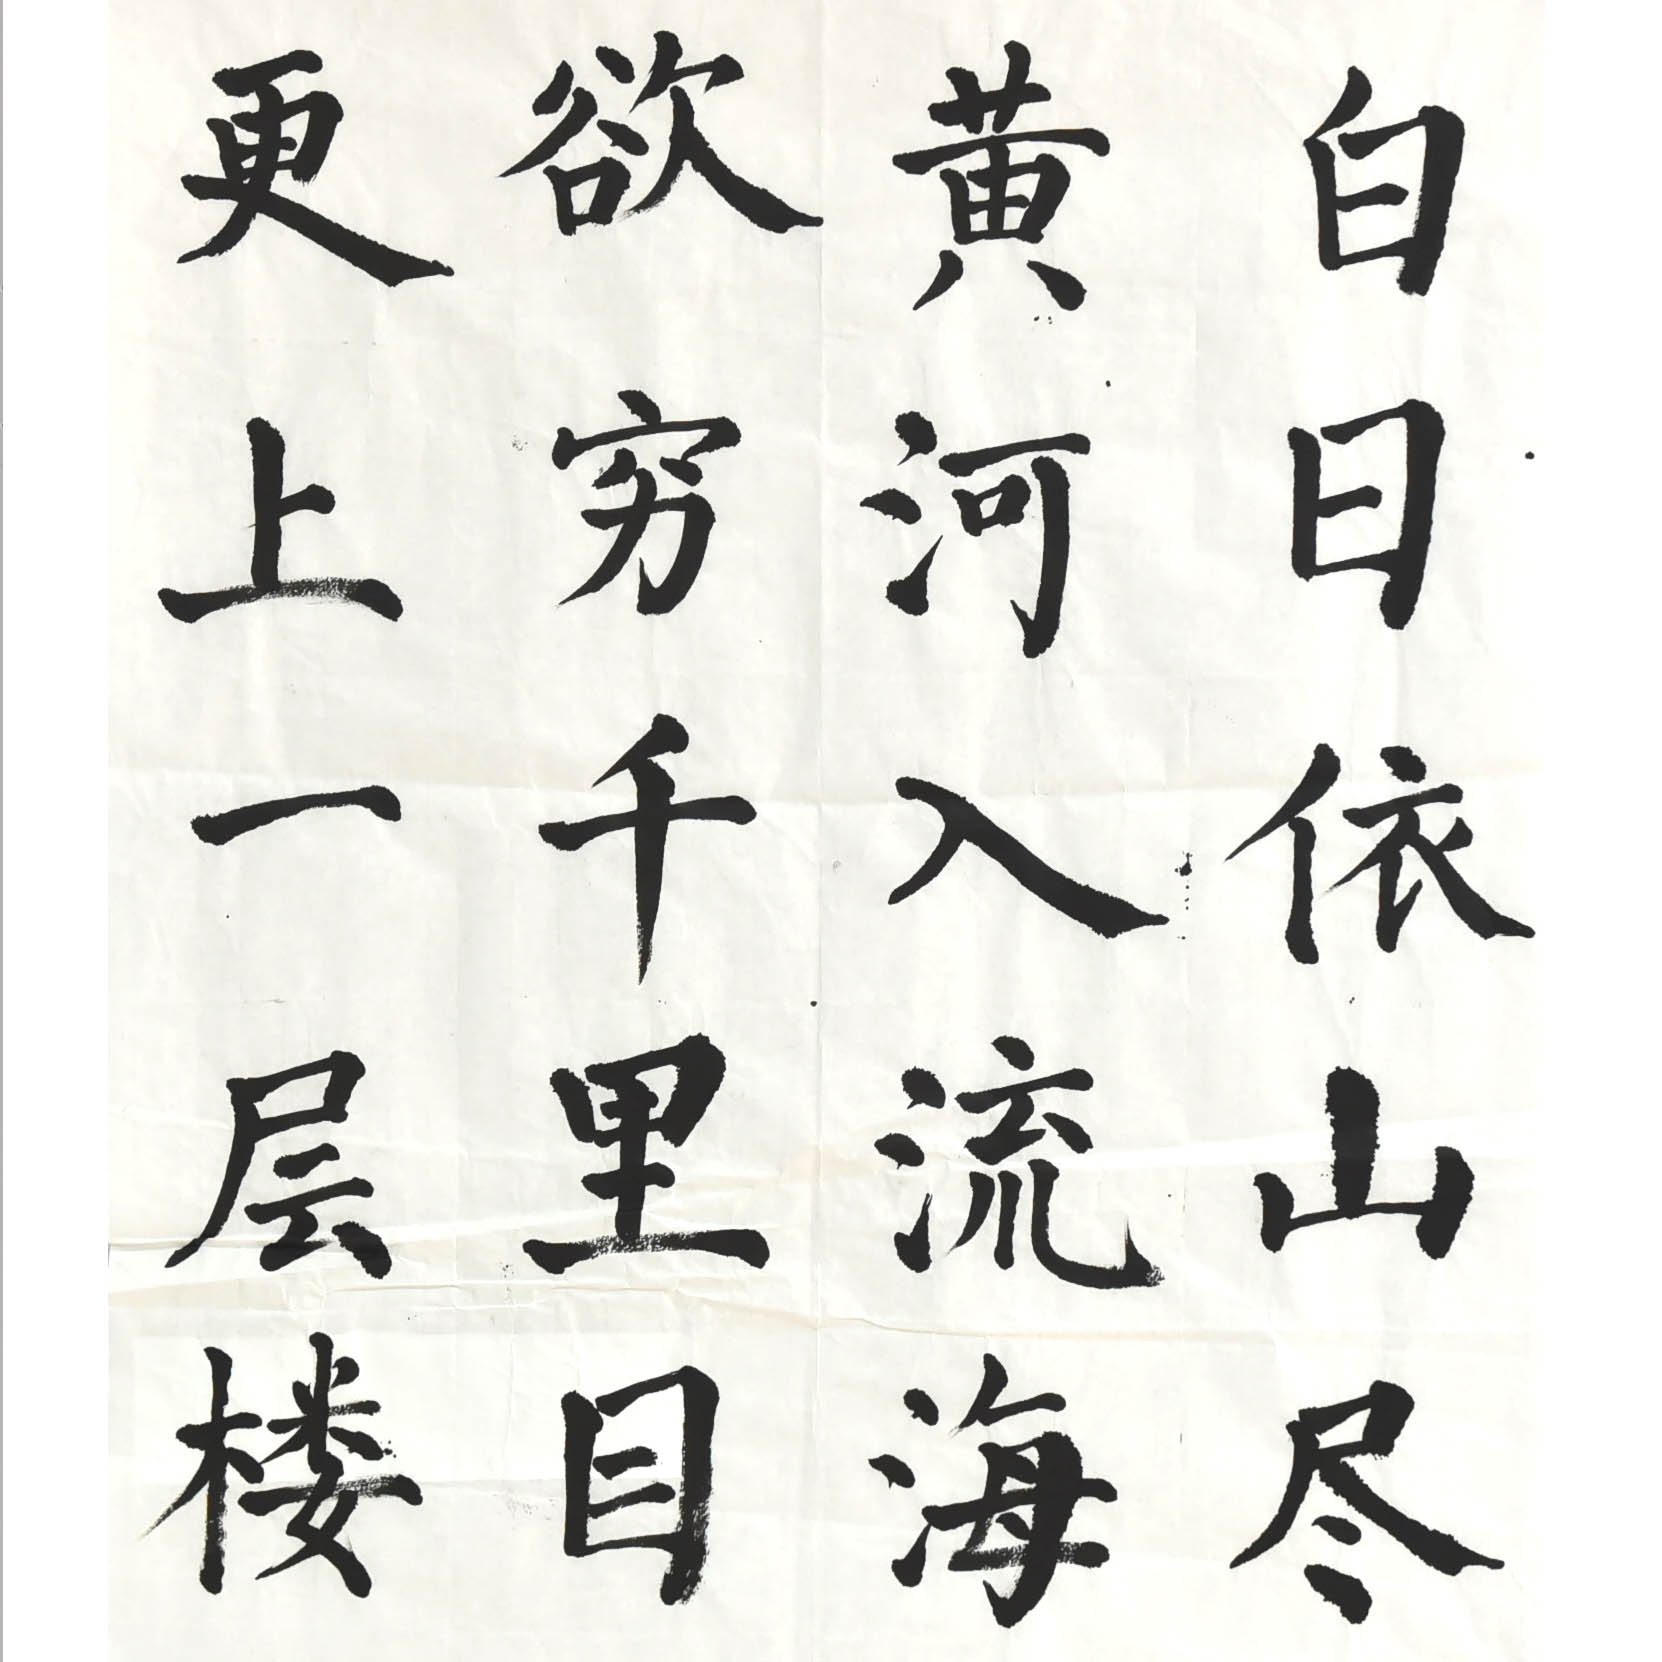 白日依山尽
黄河入流海
欲穷千里目
更上一层楼